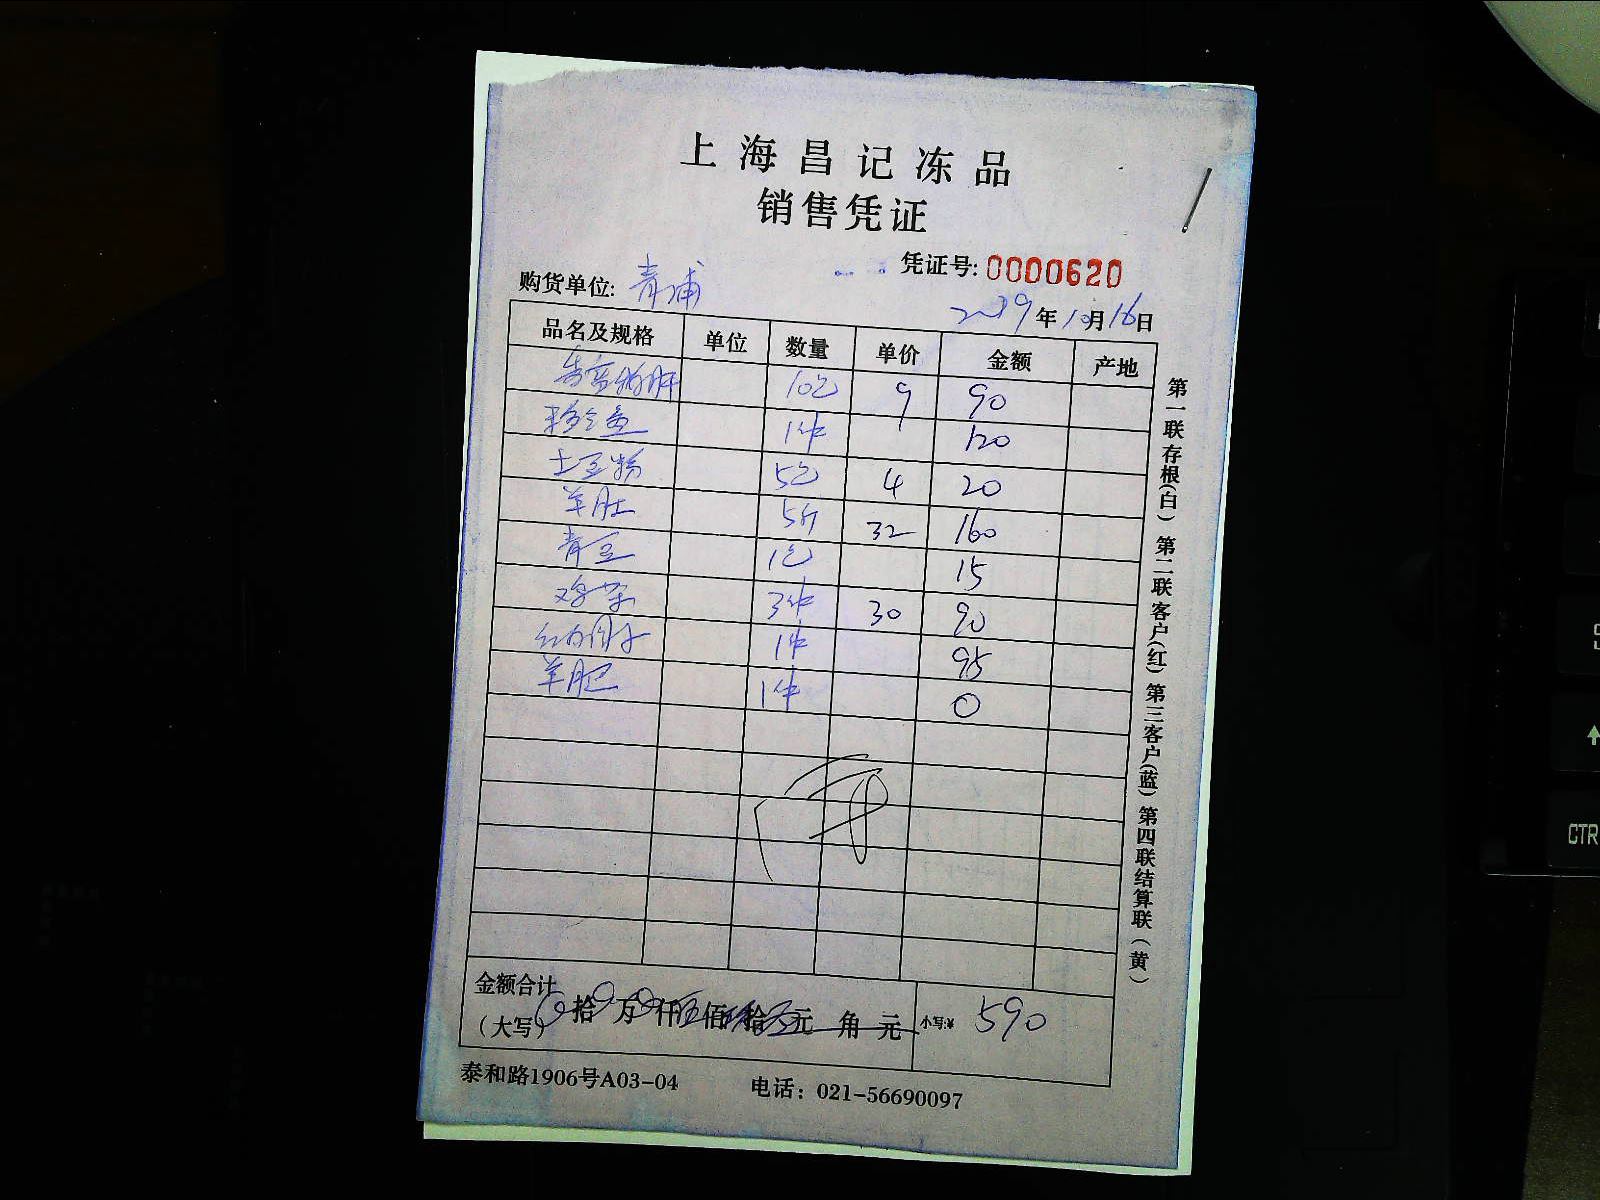 上海昌记冻品
销售凭证
凭证号: 0000620
购货单位: 青浦
2019年10月16日
品名及规格 单位 数量 单价 金额 产地
10包 9 90
1件 120
土豆粉 5包 4 20
羊肚 5斤 32 160
青豆 1包 15
鸡 3件 30 90
1件 95
羊肥 1件 0
金额合计
(大写) 拾 万 仟 伍 佰 拾 元 角 元 小写:¥ 590
泰和路1906号A03-04 电话: 021-56690097
第一联存根(白) 第二联客户(红) 第三客户(蓝) 第四联结算联(黄)
S
CTR